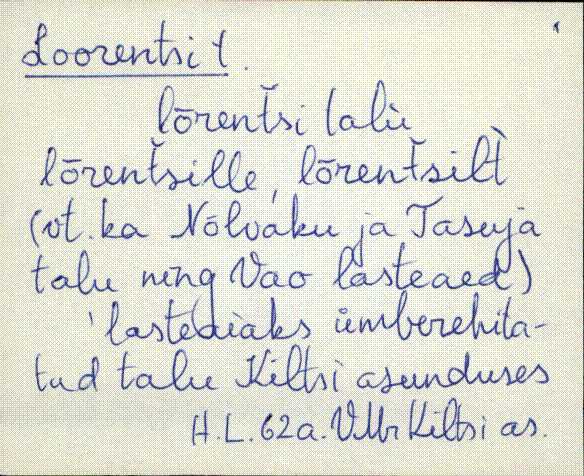 Loorentsi t.
lōrentši talù
lōrentšille, lōrentšilt̀
(vt. ka Nõlvaku ja Tasuja
talu ning Vao lasteaed)
'lasteaiaks ümberehita-
tud talu Kiltsi asunduses
H.L. 62a. VMr Kiltsi as.